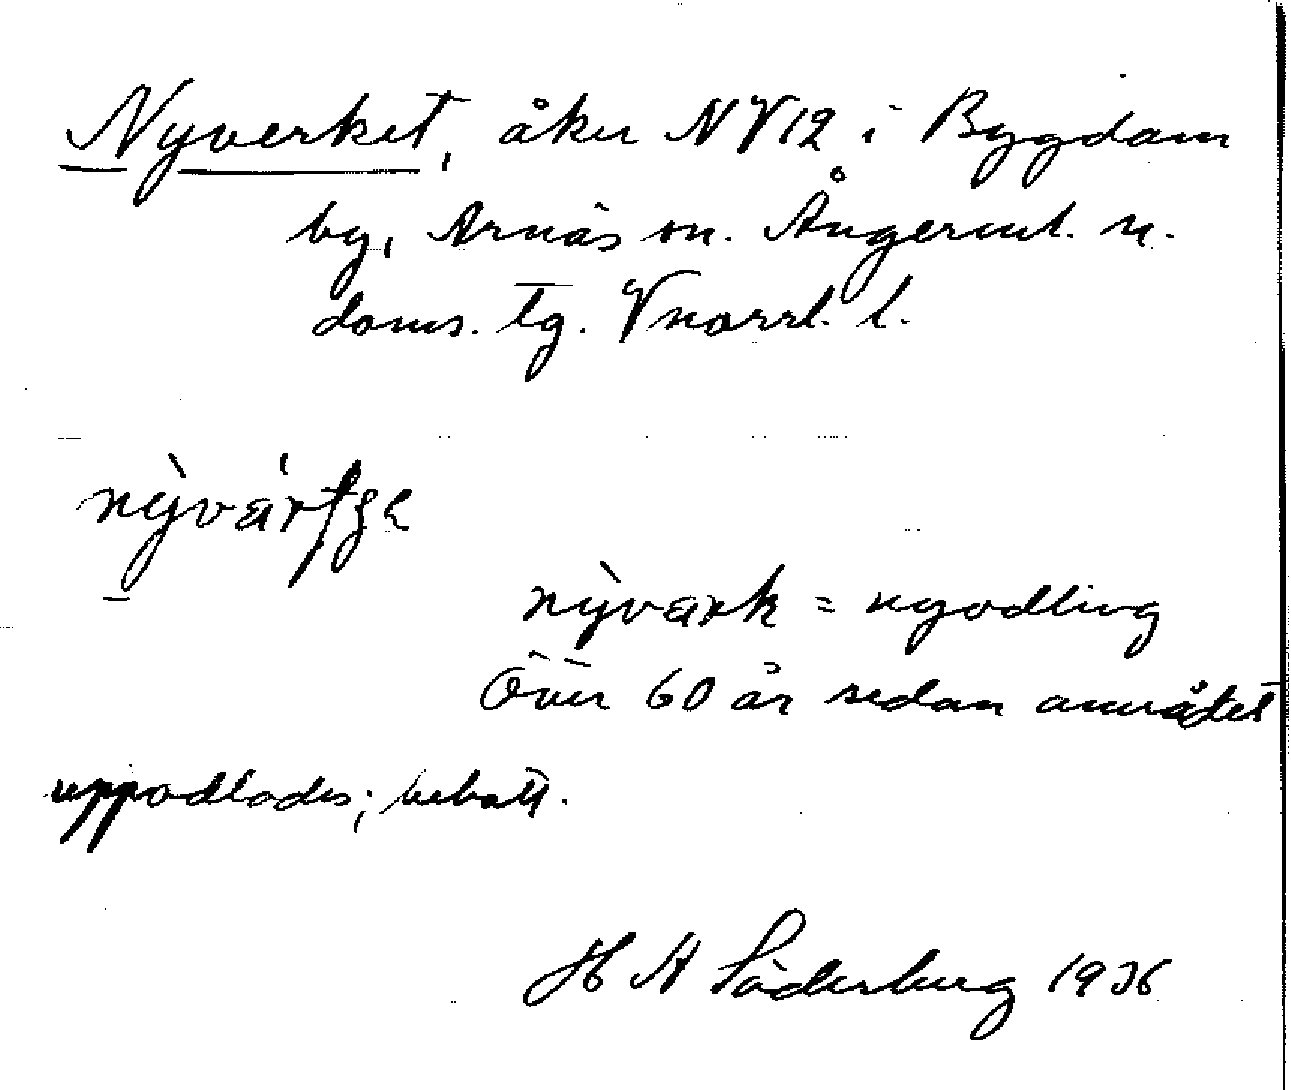 Nyverket, åker NV12 i Bygdom
by, Arnäs sn. Ångerml. n.
doms. tg. Vnorrl. l.
nỳvark = nyodling
Över 60 år sedan området
uppodlades; bebott.
H A Söderberg 1936